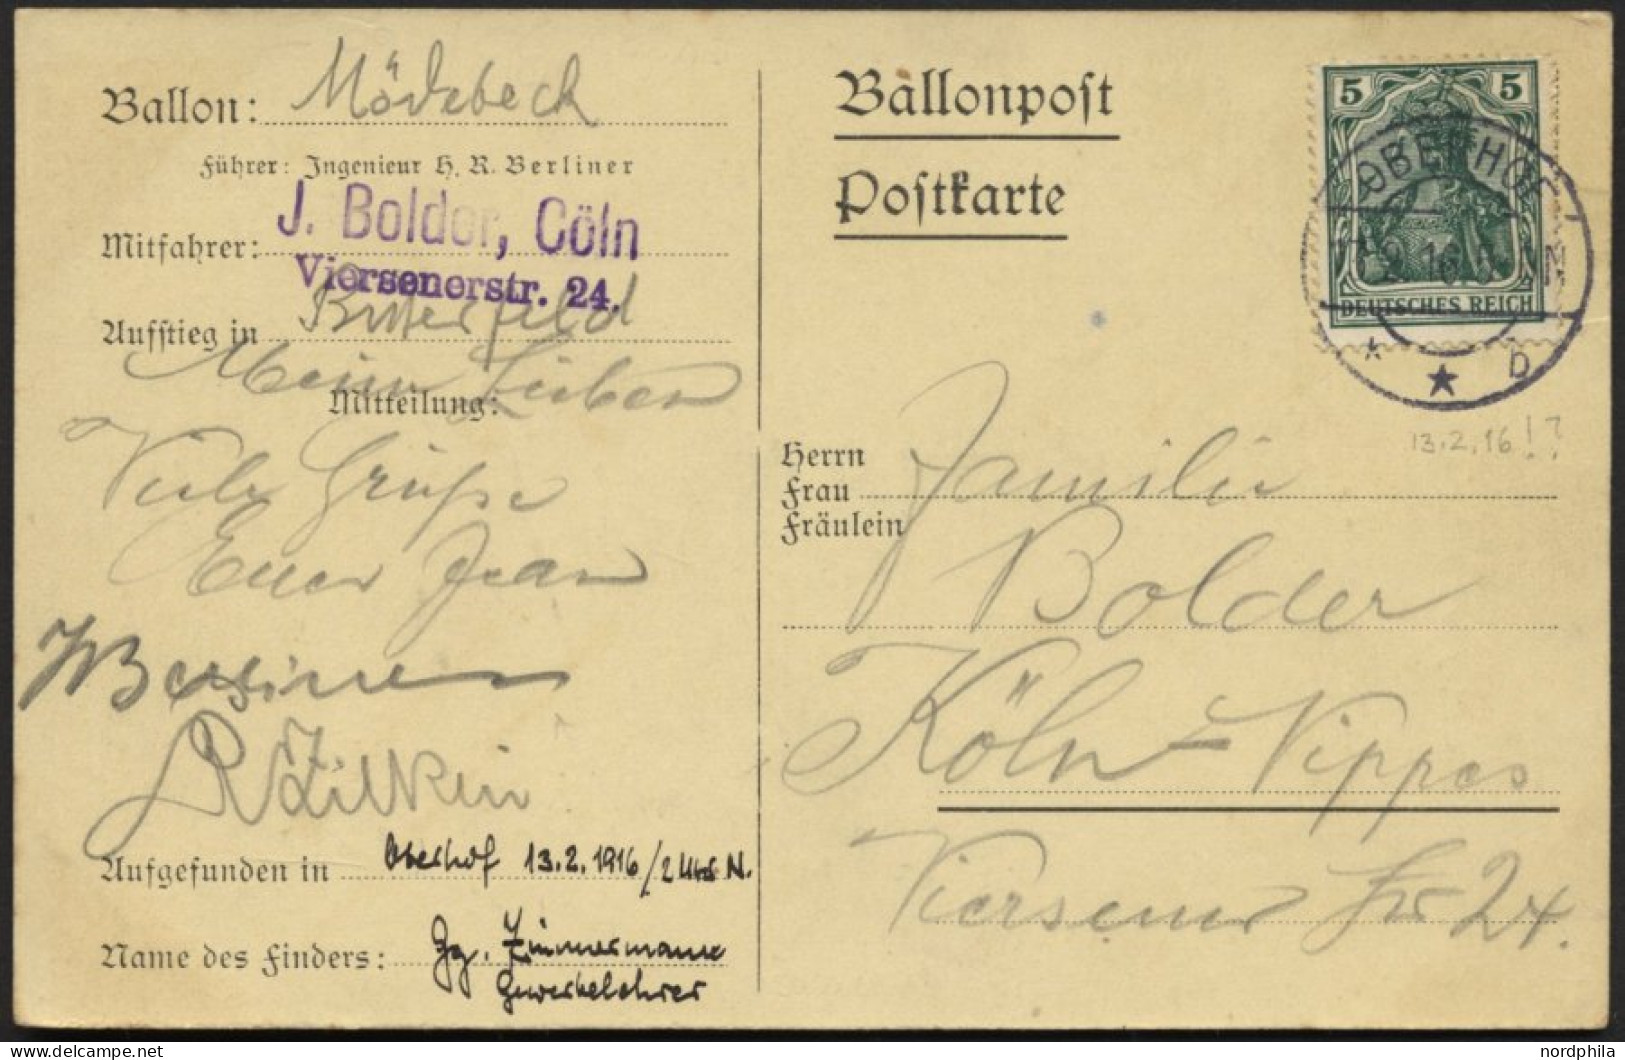 Ballon: Mödebeck
Führer: Ingenieur H. R. Berliner
J. Bolder, Cöln
Mitfahrer:
Viersenerstr. 24.
Aufstieg in Bitterfeld
Meine Lieben
Mitteilung:
Viele Grüße
Euer Jean
Berliner
Aufgefunden in Oberhof 13.2.1916/2 Uhr N.
Name des Finders: Gg. Zimmermann
Gewerbelehrer
Ballonpost
Postkarte
5 5
OBERHOF
DEUTSCHES REICH
b
13.2.16!?
Herrn
Frau
Fräulein
Familie
Bolder
Köln-Nippes
Viersener Str 24.
nordphila